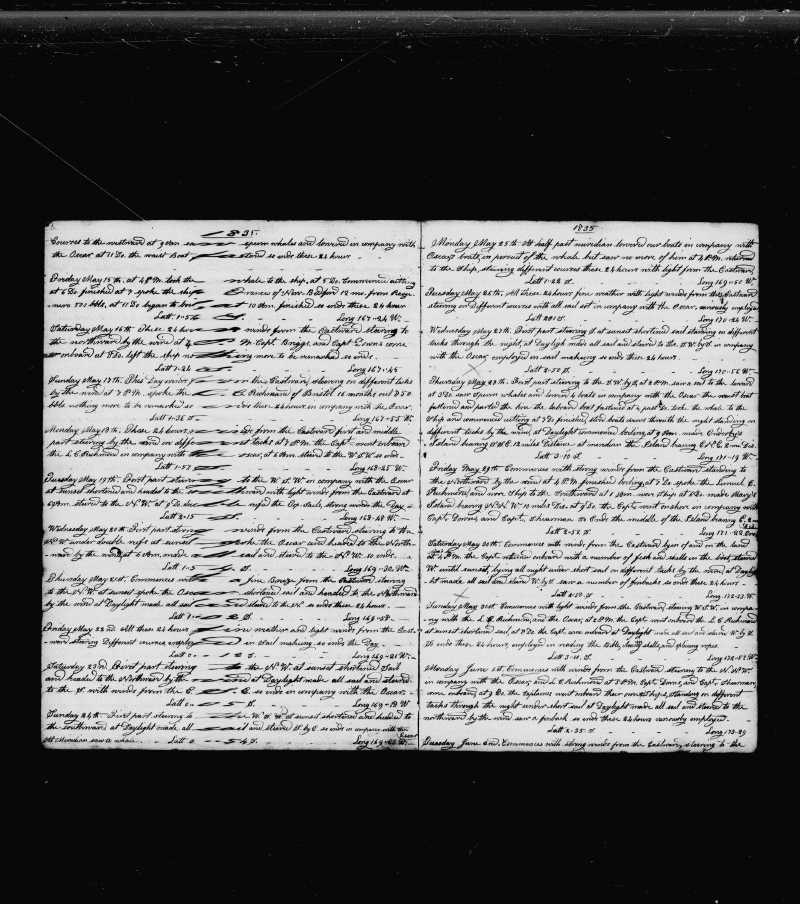 1835
Courses to the westward at 9 am saw sperm whales and lowered in company with
the Oscar at 11 Do. the waist boat fastened so ends these 24 hours
Friday May 15th. at 4 P.M. took the whale to the ship, at 5 Do. Commenced cutting
at 6 Do finished at 7 spoke the ship Frances of New Bedford 12 mo. from
at 11 Do began to 10 Am finished so ends these 24 hours
Latt 1-54 Long 167-24 W.
Saturday May 16th These 24 hours winds from the Eastward steering to
the northward by the wind at 4 P.M. Capt. Briggs and Capt. came
onboard at 8 Do. left the ship nothing more to be remarked so ends
Latt 1-24 Long 167-45
Sunday May 17th. This Day winds from the Eastward, steering on different tacks
by the wind at 7 P.M. spoke the L C Richmond of Bristol 16 months out 750
bbls nothing more to be remarked so ends these 24 hours in company with the Oscar.
Latt 1-36 S. Long 167-55 W.
Monday May 18th. These 24 hours winds from the Eastward first and middle
part steering by the wind on different tacks at 7 P.M. the Capt. went onboard
the L C Richmond in company with the Oscar, at 6 Am steered to the W.S.W. so ends
Latt 1-57 Long 168-25 W.
Tuesday May 19th. First part steering to the W.S.W. in company with the Oscar
at sunset shortened and headed to the southward with light winds from the Eastward at
6 Am. steer to the N.W. at 9 Do. reefed the Top-sails, strong winds the Day
Latt 2-15 Long 168-48 W.
Wednesday May 20th First part strong winds from the Eastward steering to the
N.W. under double reefs at sunset spoke the Oscar and headed to the North-
ward by the wind, at 6 Am. made all sail and steered to the N.W. so ends
Latt 1-5 S. Long 169-30 W.
Thursday May 21st. Commences with a fine Breeze from the Eastward steering
to the N.W. at sunset spoke the Oscar shortened sail and headed to the Northward
by the wind at Daylight made all sail and steered to the N. so ends these 24 hours.
Latt S. Long 169-58
Friday May 22nd All these 24 hours fine weather and light winds from the East-
ward steering Different courses, employed in sail making so ends the Day
Latt 0- S. Long 169-21 W.
Saturday 23rd First part steering to the N.W. at sunset shortened Sail
and headed to the Northward by the wind at Daylight made all sail and steered
to the S. with winds from the E. so ends in company with the Oscar.
Latt 0- S. Long 169-19 W
Sunday 24th. First part steering to the W.S.W. at sunset shortened and headed to
the southward at Daylight made all sail and steered S by E so ends in company with the Oscar
At Meridian saw a whale Latt 0-54 S. Long 169
1835
Monday May 25th. At half past meridian lowered our boats in company with
Oscars boats, in persuit of the whale but saw no more of him at 4 P.M. returned
to the Ship, steering different courses these 24 hours with light from the Eastward
Latt 1-28 S. Long 169-50 W.
Tuesday May 26th. All these 24 hours fine weather with light winds from the Eastward
steering on Different courses with all sail set in company with the Oscar. variously employed
Latt 201 S. Long 170-24 W.
Wednesday May 27th. First part steering S at sunset shortened sail standing on different
tacks through the night, at Daylight made all sail and steered to the S.W. by S. in company
with the Oscar, employed in sail making so ends these 24 hours.
Latt 2-50 S. Long 170-56 W.
Thursday May 28th. First part steering to the S.W. by S. at 2 P.M. saw a sail to the leeward
at 3 Do saw sperm whales and lowered 4 boats in company with the Oscar the waist boat
fastened and parted the line the larboard boat fastened at 4 past Do. took the whale to the
Ship and commenced cutting at 7 Do finished, stove boats crews through the night standing on
different tacks by the wind, at Daylight commenced boiling at 9 Am. made
Island bearing S.W.S. 12 miles distance at meridian the Island bearing E.N.E. 2 mi Dis.
Latt 3-10 S. Long 171-19 W.
Friday May 29th. Commences with strong winds from the Eastward standing to
the Northward by the wind at 4 P.M. finished boiling at 7 Do spoke the Lemuel C.
Richmond, and saw Ship to the Southward at 6 Am. saw Ship at 8 Do. made Mary's
Island bearing N.N.W. 10 miles Dis. at 9 Do. the Capt. went on shore in company with
Capt. Downs, and Capt. Shearman so Ends the middle of the Island bearing E. 2 m
Latt 2-52 S. Long 171-22
Saturday May 30th. Commences with winds from the Eastward lyen of and in the land
at 4 P.M. the Capt. returned onboard with a number of fish and shells in the boat, steered
W. until sunset, lying all night under short sail on different tacks by the wind, at Daylight
made all sail and steered W. by S. saw a number of finbacks so ends these 24 hours
Latt 2-50 S. Long 172-23 W.
Sunday May 31st. Commences with light winds from the Eastward steering W.S.W. in compa-
ny with the L. C. Richmond, and the Oscar, at 2 P.M. the Capt. went onboard the L. C. Richmond
at sunset shortened sail at 8 Do. the Capt. came onboard at Daylight made all sail and steered W by S.
So ends these 24 hours, employed in mending the sails, and splicing ropes.
Latt 2-10 S. Long 172-52 W.
Monday June 1st. Commences with winds from the Eastward steering to the N.N.W.
in company with the Oscar, and L. C. Richmond at 2 P.M. Capt. Downs, and Capt. Shearman
came onboard, at 9 Do. the Captains went onboard their own Ships, standing on different
tacks through the night under short sail at Daylight made all sail and steered to the
northward by the wind saw a finback so ends these 24 hours variously employed.
Latt 2-35 S. Long 173-29
Tuesday June 2nd. Commences with strong winds from the Eastward, steering to the